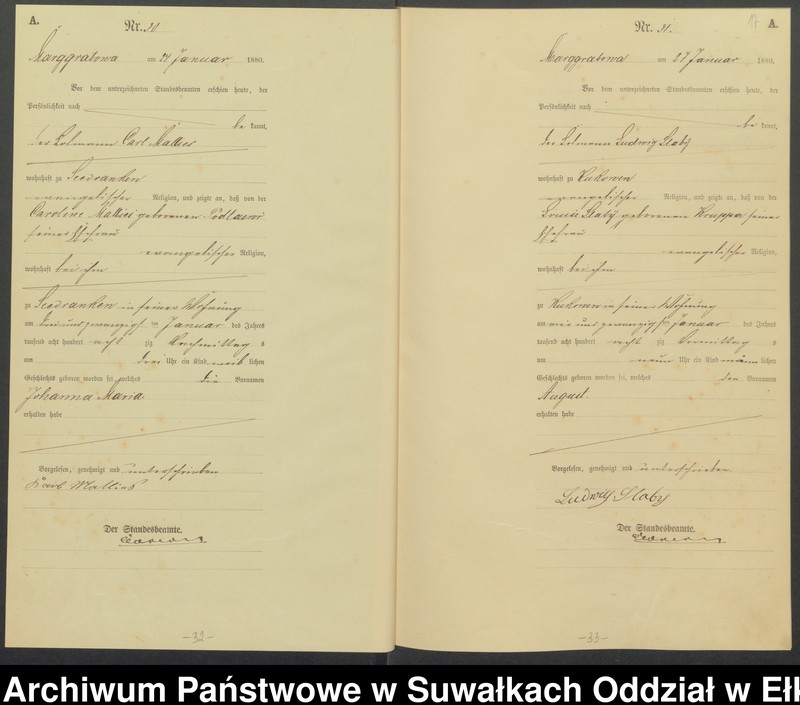 A.
Nr. 30
Marggrabowa am 24 Januar 1880.
Vor dem unterzeichneten Standesbeamten erschien heute, der
Persönlichkeit nach
be kannt,
der Kolmann Carl Mallies
wohnhaft zu Seedranken
evangelischer Religion, und zeigte an, daß von der
Caroline Mallies geborenen
seiner Ehefrau
evangelischer Religion,
wohnhaft bei ihm
zu Seedranken in seiner Wohnung
am drei und zwanzigsten Januar des Jahres
tausend acht hundert acht zig Nachmittag s
um drei Uhr ein Kind weib lichen
Geschlechts geboren worden sei, welches die Vornamen
Johanna Maria
erhalten habe
Vorgelesen, genehmigt und unterschrieben
Karl Mallies
Der Standesbeamte.
-32-
17 A.
Nr. 31.
Marggrabowa am 27 Januar 1880.
Vor dem unterzeichneten Standesbeamten erschien heute, der
Persönlichkeit nach
be kannt,
der Kolmann Ludwig Slaby
wohnhaft zu Kukowen
evangelischer Religion, und zeigte an, daß von der
Louise Slaby geborenen Kruppa seiner
Ehefrau
evangelischer Religion,
wohnhaft bei ihm
zu Kukowen in seiner Wohnung
am vier und zwanzigsten Januar des Jahres
tausend acht hundert acht zig Vormittag s
um neun Uhr ein Kind männ lichen
Geschlechts geboren worden sei, welches den Vornamen
August.
erhalten habe
Vorgelesen, genehmigt und unterschrieben
Ludwig Slaby
Der Standesbeamte.
-33-
Archiwum Państwowe w Suwałkach Oddział w Ełk